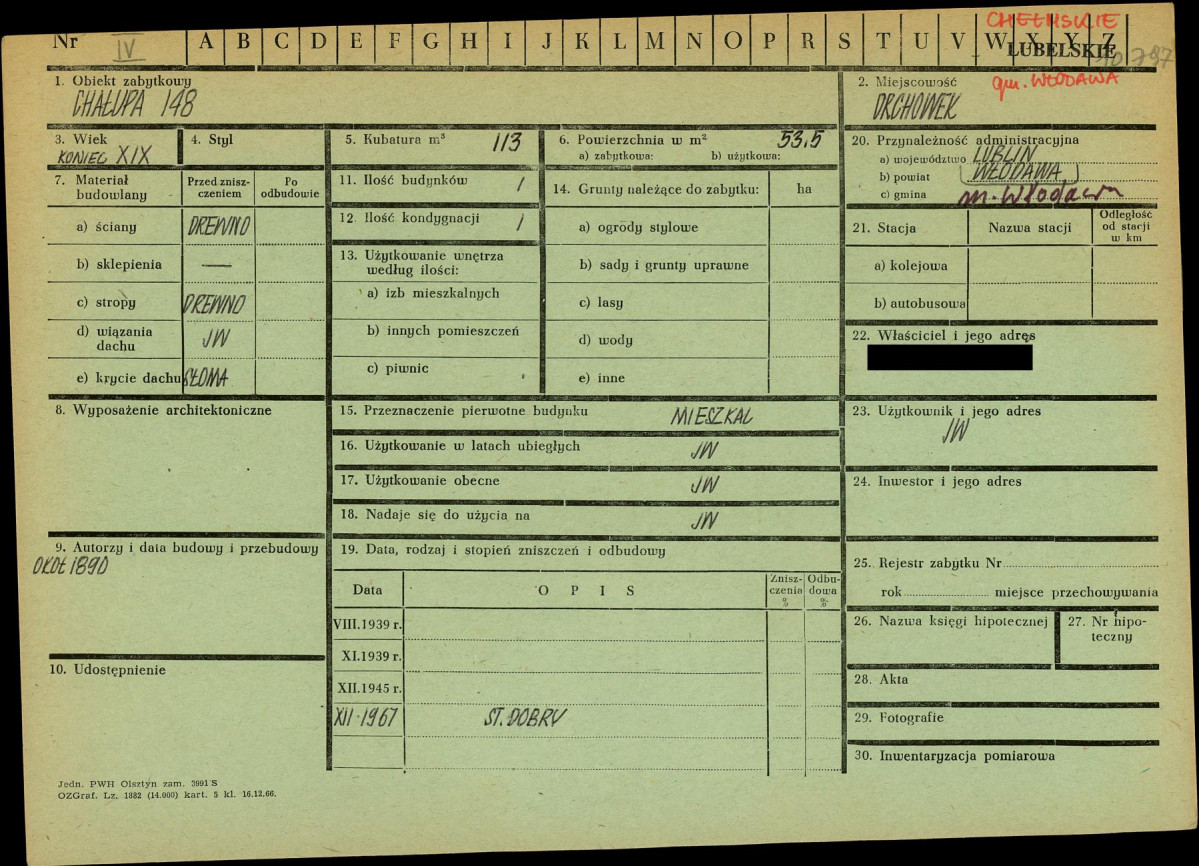 CHEŁMSKIE
Nr IV A B C D E F G H I J K L M N O P R S T U V W X Y Z
LUBELSKIE
1. Obiekt zabytkowy
CHAŁUPA 148
2. Miejscowość
gm. WŁODAWA
ORCHOWEK
3. Wiek
KONIEC XIX
4. Styl
5. Kubatura m³ 113
6. Powierzchnia w m² 53,5
a) zabytkowa: b) użytkowa:
20. Przynależność administracyjna
a) województwo LUBLIN
b) powiat (WŁODAWA)
c) gmina m. Włodawa
7. Materiał budowlany
Przed zniszczeniem
Po odbudowie
a) ściany DREWNO
b) sklepienia —
c) stropy DREWNO
d) wiązania dachu JW
e) krycie dachu SŁOMA
11. Ilość budynków 1
12. Ilość kondygnacji 1
13. Użytkowanie wnętrza
według ilości:
a) izb mieszkalnych
b) innych pomieszczeń
c) piwnic
14. Grunty należące do zabytku: ha
a) ogrody stylowe
b) sady i grunty uprawne
c) lasy
d) wody
e) inne
21. Stacja Nazwa stacji Odległość od stacji w km
a) kolejowa
b) autobusowa
22. Właściciel i jego adres
8. Wyposażenie architektoniczne
15. Przeznaczenie pierwotne budynku MIESZKAL
16. Użytkowanie w latach ubiegłych JW
17. Użytkowanie obecne JW
18. Nadaje się do użycia na JW
23. Użytkownik i jego adres
JW
24. Inwestor i jego adres
9. Autorzy i data budowy i przebudowy
OKOŁ 1890
19. Data, rodzaj i stopień zniszczeń i odbudowy
Data O P I S Zniszczenia % Odbudowa %
VIII.1939 r.
XI.1939 r.
XII.1945 r.
XII-1967 ST. DOBRY
25. Rejestr zabytku Nr
rok miejsce przechowywania
26. Nazwa księgi hipotecznej
27. Nr hipoteczny
10. Udostępnienie
28. Akta
29. Fotografie
30. Inwentaryzacja pomiarowa
Jedn. PWH Olsztyn zam. 3991 S
OZGraf. Lz. 1882 (14.000) kart. 5 kl. 16.12.66.